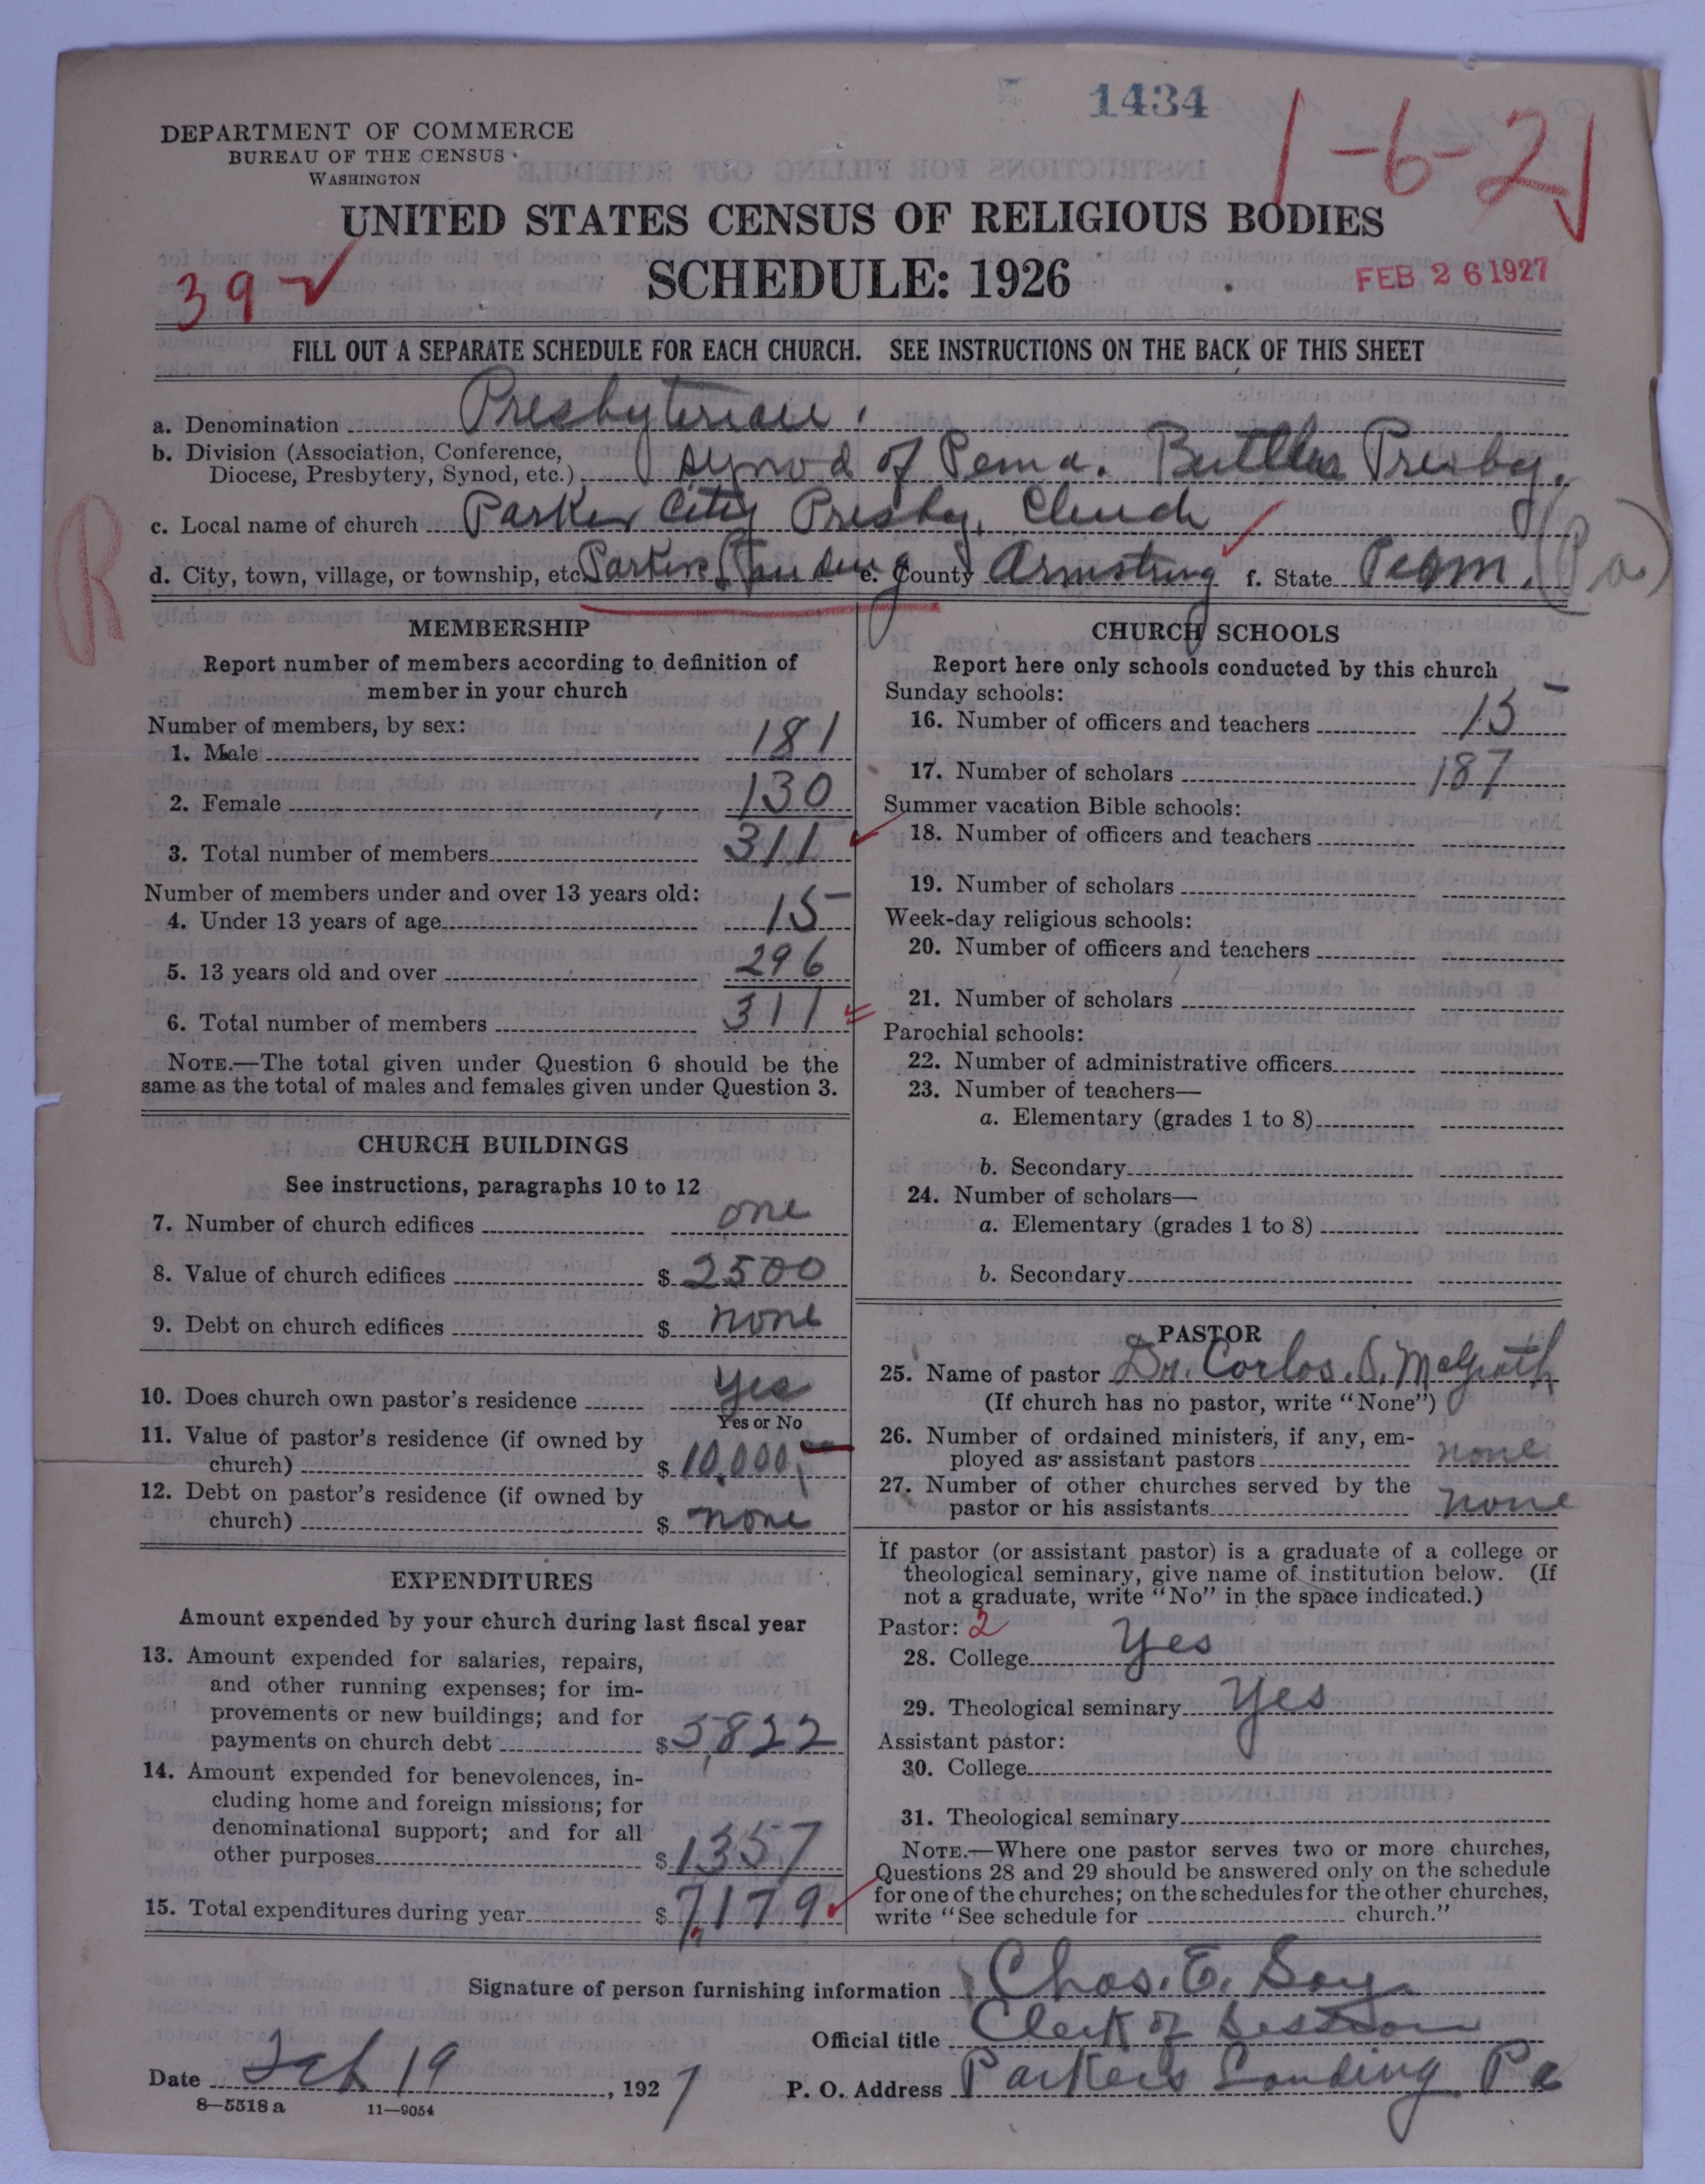 1434
1-6-21
DEPARTMENT OF COMMERCE
BUREAU OF THE CENSUS
WASHINGTON
UNITED STATES CENSUS OF RELIGIOUS BODIES
SCHEDULE: 1926
39
FEB 26 1927
FILL OUT A SEPARATE SCHEDULE FOR EACH CHURCH. SEE INSTRUCTIONS ON THE BACK OF THIS SHEET
a. Denomination Presbyterian
b. Division (Association, Conference,
Diocese, Presbytery, Synod, etc.) Synod of Penna. Butler Presby.
c. Local name of church Parker City Presby. Church
d. City, town, village, or township, etc. Parkers Landing e. County Armstrong f. State Penn. (Pa)
R
MEMBERSHIP
Report number of members according to definition of
member in your church
Number of members, by sex:
1. Male 181
2. Female 130
3. Total number of members 311
Number of members under and over 13 years old:
4. Under 13 years of age 15
5. 13 years old and over 296
6. Total number of members 311
NOTE.—The total given under Question 6 should be the
same as the total of males and females given under Question 3.
CHURCH BUILDINGS
See instructions, paragraphs 10 to 12
7. Number of church edifices one
8. Value of church edifices $ 2500
9. Debt on church edifices $ none
10. Does church own pastor's residence yes
Yes or No
11. Value of pastor's residence (if owned by
church) $ 10,000
12. Debt on pastor's residence (if owned by
church) $ none
EXPENDITURES
Amount expended by your church during last fiscal year
13. Amount expended for salaries, repairs,
and other running expenses; for im-
provements or new buildings; and for
payments on church debt $ 5,822
14. Amount expended for benevolences, in-
cluding home and foreign missions; for
denominational support; and for all
other purposes $ 1357
15. Total expenditures during year $ 7,179
CHURCH SCHOOLS
Report here only schools conducted by this church
Sunday schools:
16. Number of officers and teachers 15
17. Number of scholars 187
Summer vacation Bible schools:
18. Number of officers and teachers
19. Number of scholars
Week-day religious schools:
20. Number of officers and teachers
21. Number of scholars
Parochial schools:
22. Number of administrative officers
23. Number of teachers—
a. Elementary (grades 1 to 8)
b. Secondary
24. Number of scholars—
a. Elementary (grades 1 to 8)
b. Secondary
PASTOR
25. Name of pastor Dr. Carlos. S. McGrath
(If church has no pastor, write "None")
26. Number of ordained ministers, if any, em-
ployed as assistant pastors none
27. Number of other churches served by the
pastor or his assistants none
If pastor (or assistant pastor) is a graduate of a college or
theological seminary, give name of institution below. (If
not a graduate, write "No" in the space indicated.)
Pastor: 2
28. College Yes
29. Theological seminary Yes
Assistant pastor:
30. College
31. Theological seminary
NOTE.—Where one pastor serves two or more churches,
Questions 28 and 29 should be answered only on the schedule
for one of the churches; on the schedules for the other churches,
write "See schedule for church."
Signature of person furnishing information Chas. E. Say
Official title Clerk of Session
Date Feb 19, 1927 P. O. Address Parkers Landing Pa
8—5518 a 11—9054